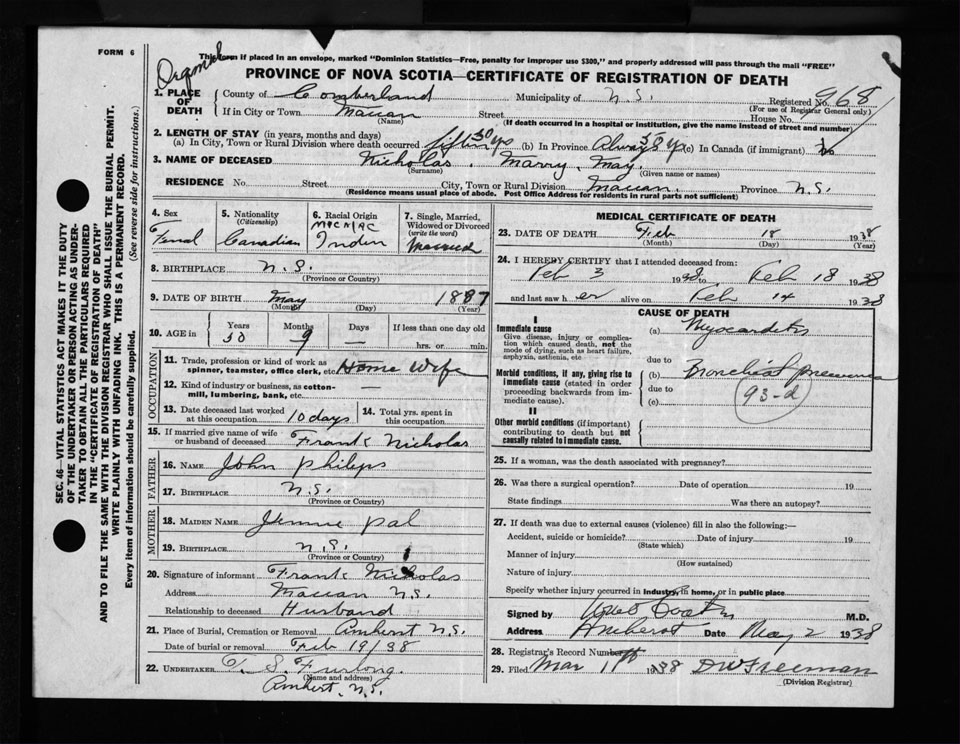 FORM 6
Original
This form if placed in an envelope, marked "Dominion Statistics—Free, penalty for improper use $300," and properly addressed will pass through the mail "FREE"
PROVINCE OF NOVA SCOTIA—CERTIFICATE OF REGISTRATION OF DEATH
SEC. 46—VITAL STATISTICS ACT MAKES IT THE DUTY
OF THE UNDERTAKER OR PERSON ACTING AS UNDER-
TAKER TO OBTAIN ALL THE PARTICULARS REQUIRED
IN THE "CERTIFICATE OF REGISTRATION OF DEATH"
AND TO FILE THE SAME WITH THE DIVISION REGISTRAR WHO SHALL ISSUE THE BURIAL PERMIT.
WRITE PLAINLY WITH UNFADING INK. THIS IS A PERMANENT RECORD.
Every item of information should be carefully supplied. (See reverse side for instructions.)
1. PLACE OF DEATH County of Comberland Municipality of N.S. Registered No. 968
(For use of Registrar General only)
If in City or Town Maccan Street House No.
(Name) (If death occurred in a hospital or institution, give the name instead of street and number)
2. LENGTH OF STAY (in years, months and days)
(a) In City, Town or Rural Division where death occurred 30 yrs (b) In Province Always 38 y (c) In Canada (if immigrant)
3. NAME OF DECEASED Nicholas. Marry. May.
(Surname) (Given name or names)
RESIDENCE No. Street City, Town or Rural Division Maccan. Province N.S.
(Residence means usual place of abode. Post Office Address for residents in rural parts not sufficient)
4. Sex Femal
5. Nationality (Citizenship) Canadian
6. Racial Origin MicMac Indin
7. Single, Married, Widowed or Divorced (write the word) Married
8. BIRTHPLACE N.S.
(Province or Country)
9. DATE OF BIRTH May 1887
(Month) (Day) (Year)
10. AGE in Years Months Days If less than one day old
30 9 — hrs. or min.
OCCUPATION
11. Trade, profession or kind of work as spinner, teamster, office clerk, etc. Home Wife
12. Kind of industry or business, as cotton-mill, lumbering, bank, etc.
13. Date deceased last worked at this occupation 10 days
14. Total yrs. spent in this occupation
15. If married give name of wife or husband of deceased Frank Nicholas
FATHER
16. NAME John Philips
17. BIRTHPLACE N.S.
(Province or Country)
MOTHER
18. MAIDEN NAME Jennie Pal
19. BIRTHPLACE N.S.
(Province or Country)
20. Signature of informant Frank Nicholas
Address Maccan N.S.
Relationship to deceased Husband
21. Place of Burial, Cremation or Removal Amherst N.S.
Date of burial or removal Feb 19/38
22. UNDERTAKER T. S. Furlong
(Name and address)
Amherst, N.S.
MEDICAL CERTIFICATE OF DEATH
23. DATE OF DEATH Feb 18 1938
(Month) (Day) (Year)
24. I HEREBY CERTIFY that I attended deceased from:
Feb 3 1938 to Feb 18 1938
and last saw her alive on Feb 14 1938
CAUSE OF DEATH
I
Immediate cause (a) Myocarditis
Give disease, injury or complication which caused death, not the mode of dying, such as heart failure, asphyxia, asthenia, etc.
due to
Morbid conditions, if any, giving rise to immediate cause (stated in order proceeding backwards from immediate cause). (b) Bronchial pneumonia
due to
(c) 93-d
II
Other morbid conditions (if important) contributing to death but not causally related to immediate cause.
25. If a woman, was the death associated with pregnancy?
26. Was there a surgical operation? Date of operation 19
State findings Was there an autopsy?
27. If death was due to external causes (violence) fill in also the following:—
Accident, suicide or homicide? Date of injury 19
(State which)
Manner of injury
(How sustained)
Nature of injury
Specify whether injury occurred in industry, in home, or in public place
Signed by M.D.
Address Amherst Date May 2 1938
28. Registrar's Record Number
29. Filed Mar 1938 DW Freeman
(Division Registrar)